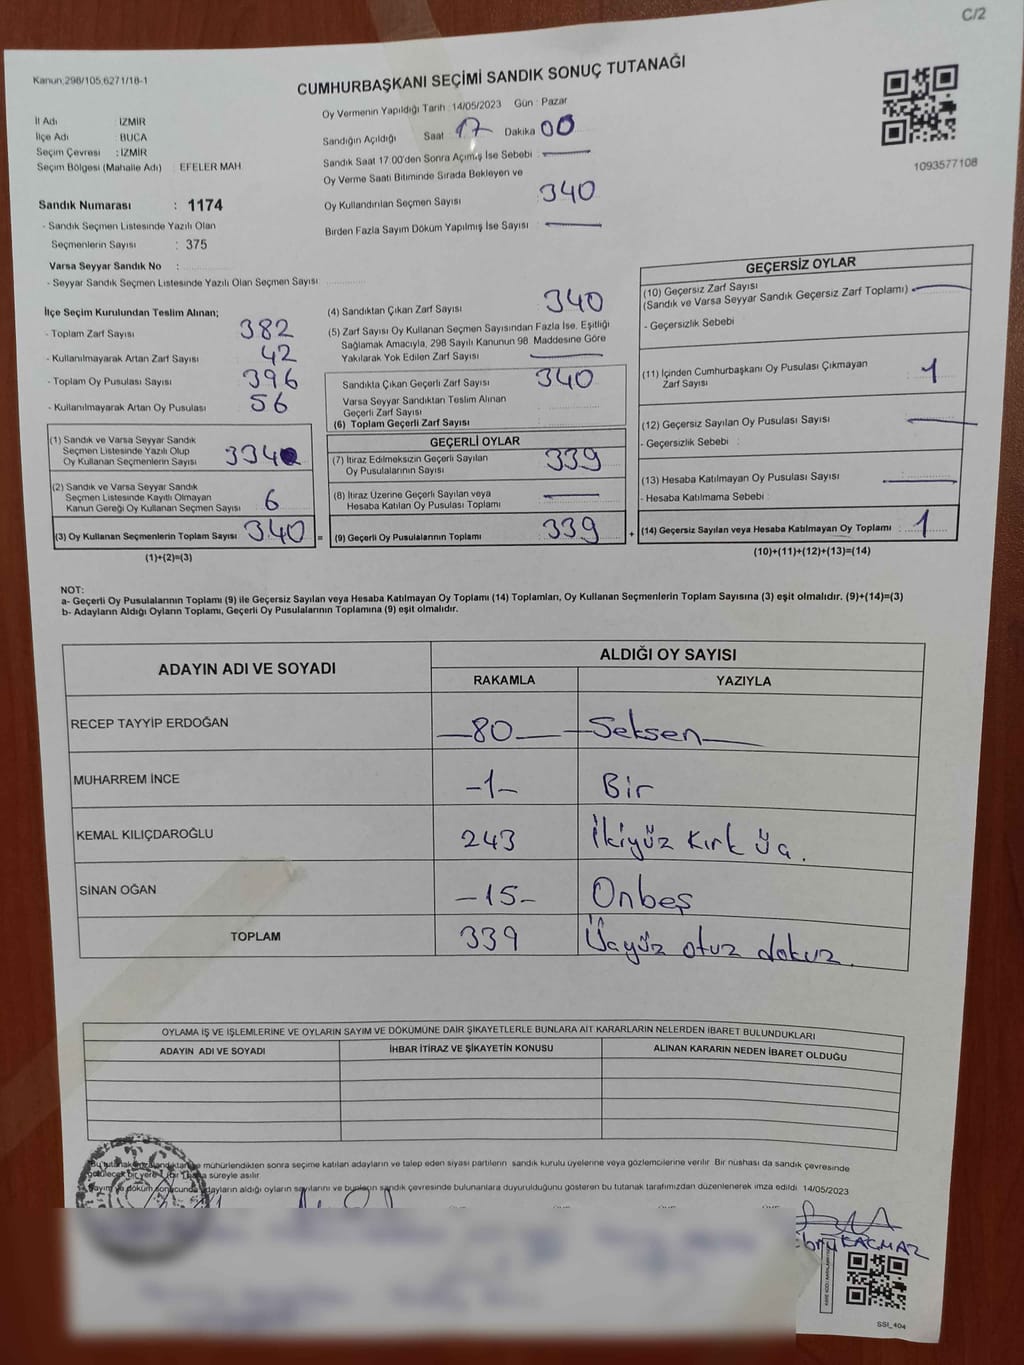 C/2
Kanun.298/105,6271/18-1
CUMHURBAŞKANI SEÇİMİ SANDIK SONUÇ TUTANAĞI
İl Adı : İZMİR
İlçe Adı : BUCA
Seçim Çevresi : İZMİR
Seçim Bölgesi (Mahalle Adı) EFELER MAH.
Sandık Numarası : 1174
- Sandık Seçmen Listesinde Yazılı Olan
Seçmenlerin Sayısı : 375
Varsa Seyyar Sandık No :
- Seyyar Sandık Seçmen Listesinde Yazılı Olan Seçmen Sayısı
Oy Vermenin Yapıldığı Tarih : 14/05/2023 Gün : Pazar
Sandığın Açıldığı Saat 17 Dakika 00
Sandık Saat 17.00'den Sonra Açılmış İse Sebebi
Oy Verme Saati Bitiminde Sırada Bekleyen ve
Oy Kullandırılan Seçmen Sayısı 340
Birden Fazla Sayım Döküm Yapılmış İse Sayısı
1093577108
İlçe Seçim Kurulundan Teslim Alınan;
- Toplam Zarf Sayısı 382
- Kullanılmayarak Artan Zarf Sayısı 42
- Toplam Oy Pusulası Sayısı 396
- Kullanılmayarak Artan Oy Pusulası 56
(1) Sandık ve Varsa Seyyar Sandık
Seçmen Listesinde Yazılı Olup
Oy Kullanan Seçmenlerin Sayısı 334
(2) Sandık ve Varsa Seyyar Sandık
Seçmen Listesinde Kayıtlı Olmayan
Kanun Gereği Oy Kullanan Seçmen Sayısı 6
(3) Oy Kullanan Seçmenlerin Toplam Sayısı 340 =
(1)+(2)=(3)
(4) Sandıktan Çıkan Zarf Sayısı 340
(5) Zarf Sayısı Oy Kullanan Seçmen Sayısından Fazla İse, Eşitliği
Sağlamak Amacıyla, 298 Sayılı Kanunun 98. Maddesine Göre
Yakılarak Yok Edilen Zarf Sayısı
Sandıkta Çıkan Geçerli Zarf Sayısı 340
Varsa Seyyar Sandıktan Teslim Alınan
Geçerli Zarf Sayısı
(6) Toplam Geçerli Zarf Sayısı
GEÇERLİ OYLAR
(7) İtiraz Edilmeksizin Geçerli Sayılan
Oy Pusulalarının Sayısı 339
(8) İtiraz Üzerine Geçerli Sayılan veya
Hesaba Katılan Oy Pusulası Toplamı
(9) Geçerli Oy Pusulalarının Toplamı 339 +
GEÇERSİZ OYLAR
(10) Geçersiz Zarf Sayısı
(Sandık ve Varsa Seyyar Sandık Geçersiz Zarf Toplamı)
- Geçersizlik Sebebi
(11) İçinden Cumhurbaşkanı Oy Pusulası Çıkmayan
Zarf Sayısı 1
(12) Geçersiz Sayılan Oy Pusulası Sayısı
- Geçersizlik Sebebi :
(13) Hesaba Katılmayan Oy Pusulası Sayısı
- Hesaba Katılmama Sebebi :
(14) Geçersiz Sayılan veya Hesaba Katılmayan Oy Toplamı 1
(10)+(11)+(12)+(13)=(14)
NOT:
a- Geçerli Oy Pusulalarının Toplamı (9) ile Geçersiz Sayılan veya Hesaba Katılmayan Oy Toplamı (14) Toplamları, Oy Kullanan Seçmenlerin Toplam Sayısına (3) eşit olmalıdır. (9)+(14)=(3)
b- Adayların Aldığı Oyların Toplamı, Geçerli Oy Pusulalarının Toplamına (9) eşit olmalıdır.
ADAYIN ADI VE SOYADI ALDIĞI OY SAYISI
RAKAMLA YAZIYLA
RECEP TAYYİP ERDOĞAN -80- -Seksen-
MUHARREM İNCE -1- Bir
KEMAL KILIÇDAROĞLU 243 İkiyüz kırk üç.
SİNAN OĞAN -15- Onbeş
TOPLAM 339 Üçyüz otuz dokuz.
OYLAMA İŞ VE İŞLEMLERİNE VE OYLARIN SAYIM VE DÖKÜMÜNE DAİR ŞİKAYETLERLE BUNLARA AİT KARARLARIN NELERDEN İBARET BULUNDUKLARI
ADAYIN ADI VE SOYADI İHBAR İTİRAZ VE ŞİKAYETİN KONUSU ALINAN KARARIN NEDEN İBARET OLDUĞU
mühürlendikten sonra seçime katılan adayların ve talep eden siyasi partilerin sandık kurulu üyelerine veya gözlemcilerine verilir. Bir nüshası da sandık çevresinde
süreyle asılır.
adayların aldığı oyların sayılarını ve bunların sandık çevresinde bulunanlara duyurulduğunu gösteren bu tutanak tarafımızdan düzenlenerek imza edildi. 14/05/2023
KAÇMAZ
SSI_404